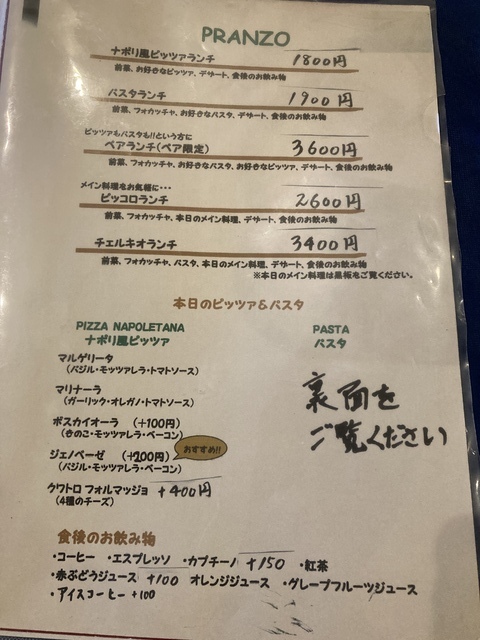 PRANZO
ナポリ風ピッツァランチ 1800円
前菜、お好きなピッツァ、デザート、食後のお飲み物
パスタランチ 1900円
前菜、フォカッチャ、お好きなパスタ、デザート、食後のお飲み物
ピッツァもパスタも!!という方に
ペアランチ(ペア限定) 3600円
前菜、フォカッチャ、お好きなパスタ、お好きなピッツァ、デザート、食後のお飲み物
メイン料理をお気軽に・・・
ピッコロランチ 2600円
前菜、フォカッチャ、本日のメイン料理、デザート、食後のお飲み物
チェルキオランチ 3400円
前菜、フォカッチャ、パスタ、本日のメイン料理、デザート、食後のお飲み物
※本日のメイン料理は黒板をご覧ください。
本日のピッツァ&パスタ
PIZZA NAPOLETANA
ナポリ風ピッツァ
マルゲリータ
(バジル・モッツァレラ・トマトソース)
マリナーラ
(ガーリック・オレガノ・トマトソース)
ボスカイオーラ (+100円)
(きのこ・モッツァレラ・ベーコン)
ジェノベーゼ (+200円) おすすめ!!
(バジル・モッツァレラ・ベーコン)
クワトロ フォルマッジョ +400円
(4種のチーズ)
PASTA
パスタ
裏面を
ご覧ください
食後のお飲み物
・コーヒー ・エスプレッソ ・カプチーノ +150 ・紅茶
・赤ぶどうジュース +100 オレンジジュース ・グレープフルーツジュース
・アイスコーヒー +100